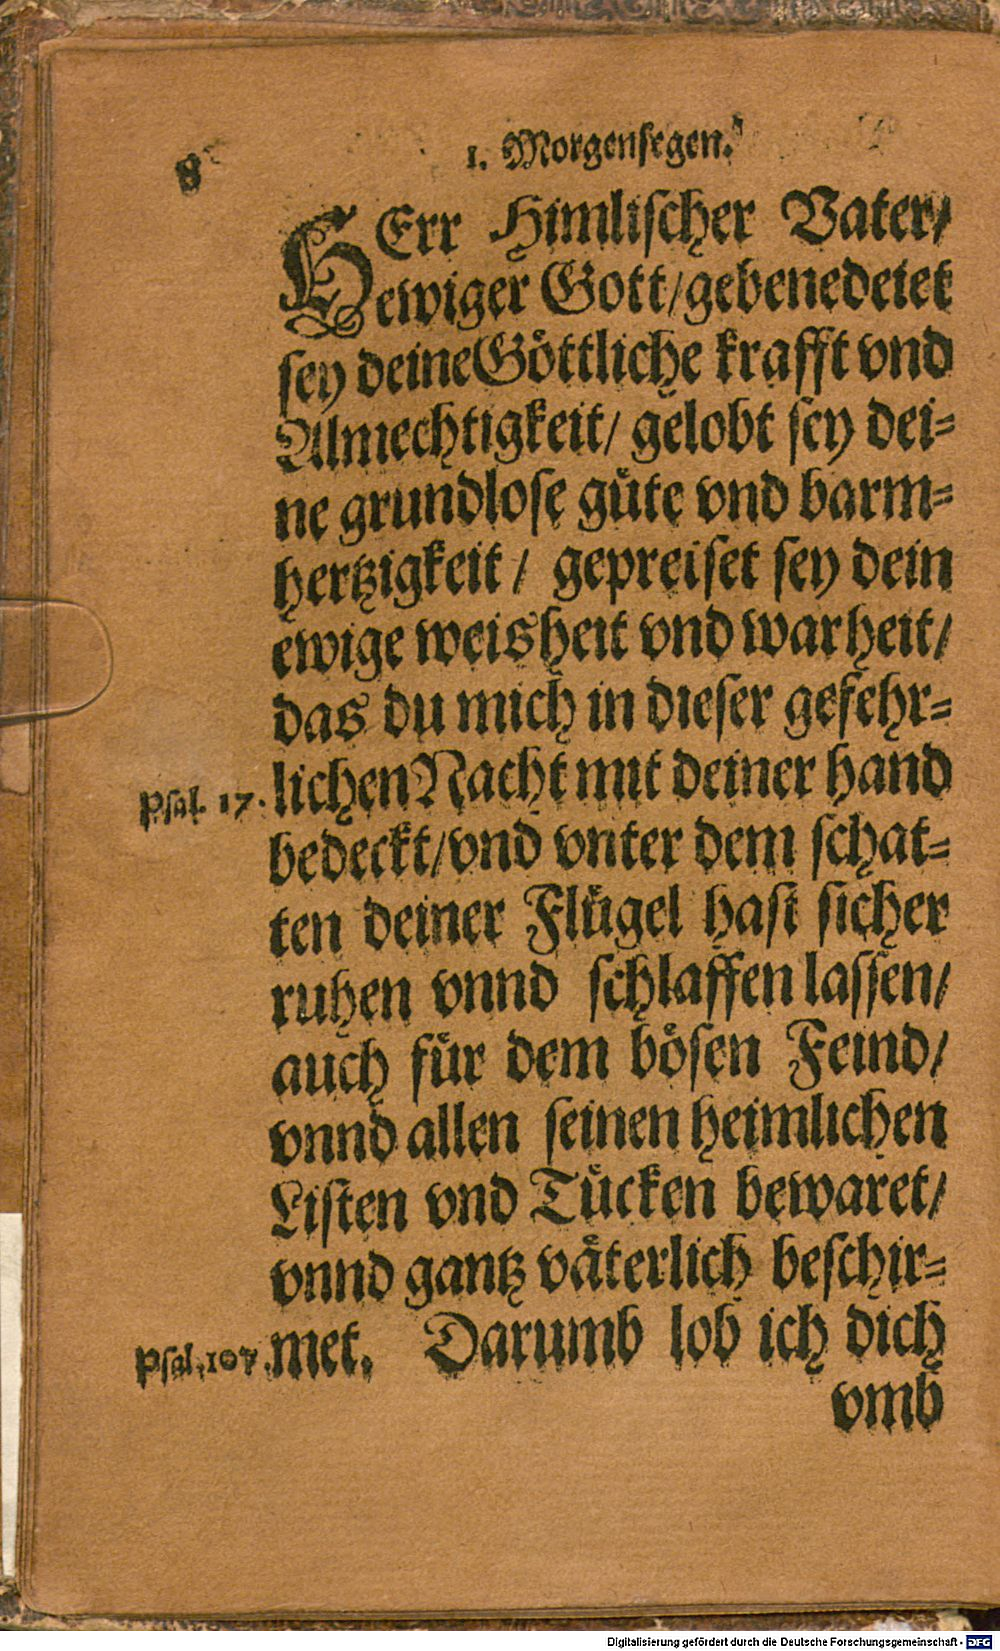 8
1. Morgensegen.
HErr Himlischer Vater/
ewiger Gott/gebenedeiet
sey deine Göttliche krafft vnd
Almechtigkeit/ gelobt sey dei-
ne grundlose güte vnd barm-
hertzigkeit/ gepreiset sey dein
ewige weisheit vnd warheit/
das du mich in dieser gefehr-
Psal. 17. lichen Nacht mit deiner hand
bedeckt/vnd vnter dem schat-
ten deiner Flügel hast sicher
ruhen vnnd schlaffen lassen/
auch für dem bösen Feind/
vnnd allen seinen heimlichen
Listen vnd Tücken bewaret/
vnnd gantz väterlich beschir-
Psal. 104. met. Darumb lob ich dich
vmb
Digitalisierung gefördert durch die Deutsche Forschungsgemeinschaft - DFG